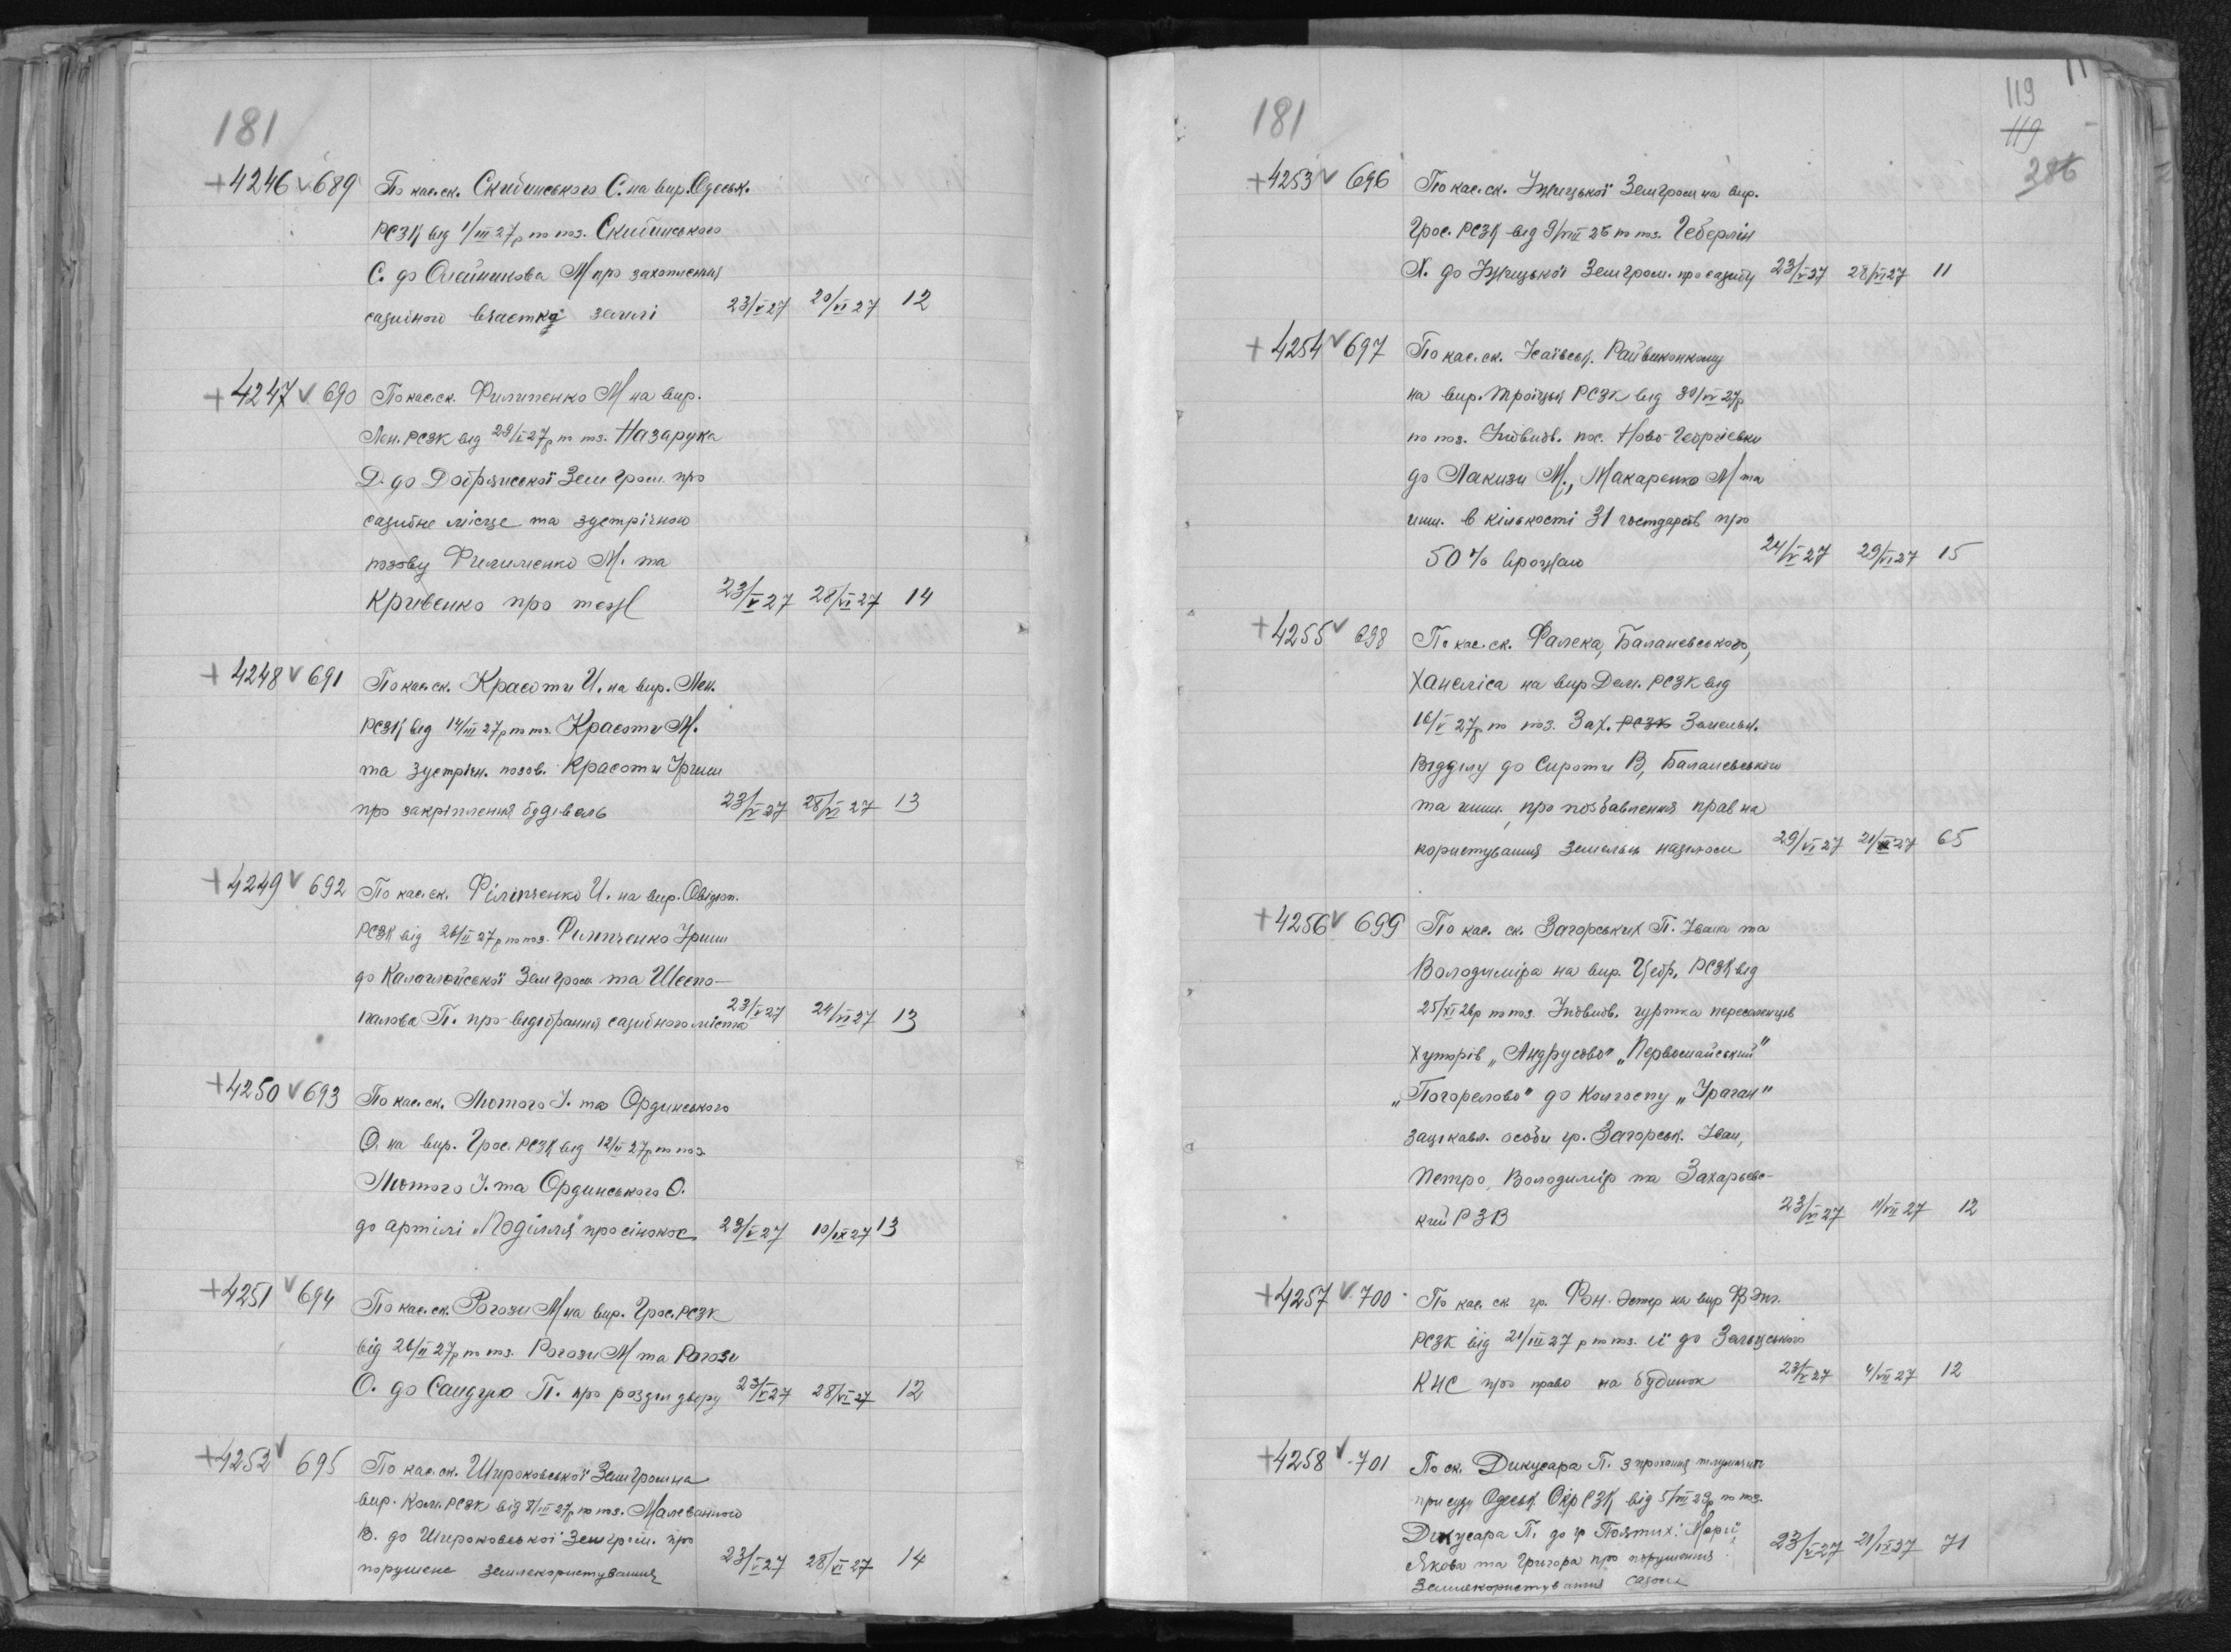 181
+4246 v 689 По кас. ск. Скибинського С. на вир. Одеськ.
РСЗК від 1/III 27р по поз. Скибинського
С. до Олейникова М про захоплення
садибного вчастка землі 23/V 27 20/VI 27 12
+4247 v 690 По кас. ск. Филипенко М на вир.
Лен. РСЗК від 29/II 27р по поз. Назарука
Д. до Добрянської Зем Гром. про
садибне місце та зустрічною
позову Филипенко М. та
Кривенко про теж 23/V 27 28/VI 27 14
+4248 v 691 По кас. ск. Красоти И. на вир. Лен.
РСЗК від 14/III 27р по поз. Красоти М.
та зустрічн. позов. Красоти Ірини
про закріплення будівель 23/V 27 28/VI 27 13
+4249 v 692 По кас. ск. Філіпченко И. на вир. Овідіоп.
РСЗК від 26/II 27р по поз. Филипченко Ірини
до Калаглейської Зем Гром та Шепо-
палова П. про відібрання садибного міста 23/V 27 24/VI 27 13
+4250 v 693 По кас. ск. Лютого І. та Ординського
О. на вир. Грос. РСЗК від 12/II 27р по поз
Лютого І. та Ординського О.
до артілі "Поділля" про сінокос 23/V 27 10/IX 27 13
+4251 v 694 По кас. ск. Рогози М на вир. Грос. РСЗК
від 26/II 27р по поз. Рогози М та Рогози
О. до Сандую П. про розділ двору 23/V 27 28/VI 27 12
+4252 v 695 По кас. ск. Широковської Зем Гром на
вир. Ком. РСЗК від 8/III 27р по поз. Малеванного
В. до Широковської Зем Гром. про
порушене землекористування 23/V 27 28/VI 27 14
181
119
119
286
+4253 v 696 По кас. ск. Зем Гром на вир.
Грос. РСЗК від 9/VIII 26 по поз. Геберлін
Х. до Зем Гром. про садибу 23/V 27 28/VI 27 11
+4254 v 697 По кас. ск. Ісаївськ. Райвиконкому
на вир. Троїцьк РСЗК від 30/IV 27р
по поз. Індивідв. пос. Ново-Георгієвки
до Лакизи М., Макаренко М та
инш. в кількості 31 господарств про
50% врожаю 24/V 27 29/VI 27 15
+4255 v 698 По кас. ск. Фалека, Баланевського,
Ханеліса на вир Дем. РСЗК від
16/V 27р по поз. Зах. РСЗК Земельн.
Відділу до Сироти В, Баланевського
та инш., про позбавлення прав на
користування земельн наділом 29/VI 27 21/ 27 65
+4256 v 699 По кас. ск. Загорських П. Івана та
Володиміра на вир. Цебр. РСЗК від
25/XI 26р по поз. Індивідв. гуртка переселенців
хуторів „Андрусово" „Первомайський"
„Погорелово" до Колгоспу „Ураган"
зацікавл. особи гр. Загорськ. Іван,
Петро, Володимір та Захарьевс-
кий РЗВ 23/VI 27 11/VII 27 12
+4257 v 700 По кас. ск. гр. Фін. Эстер на вир Фрнт.
РСЗК від 21/III 27 р по поз. її до
КНС про право на будинок 23/V 27 4/VII 27 12
+4258 v 701 По ск. Дикусара П. з прохання тлумачити
присуду Одеськ. Окр СЗК від 5/ 29р по поз.
Дикусара П. до гр Поятих: Марії,
Якова та Григора про порушення 23/V 27 21/IX 27 71
Землекористування садом